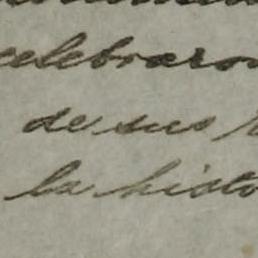 celebraron
de sus
la histo